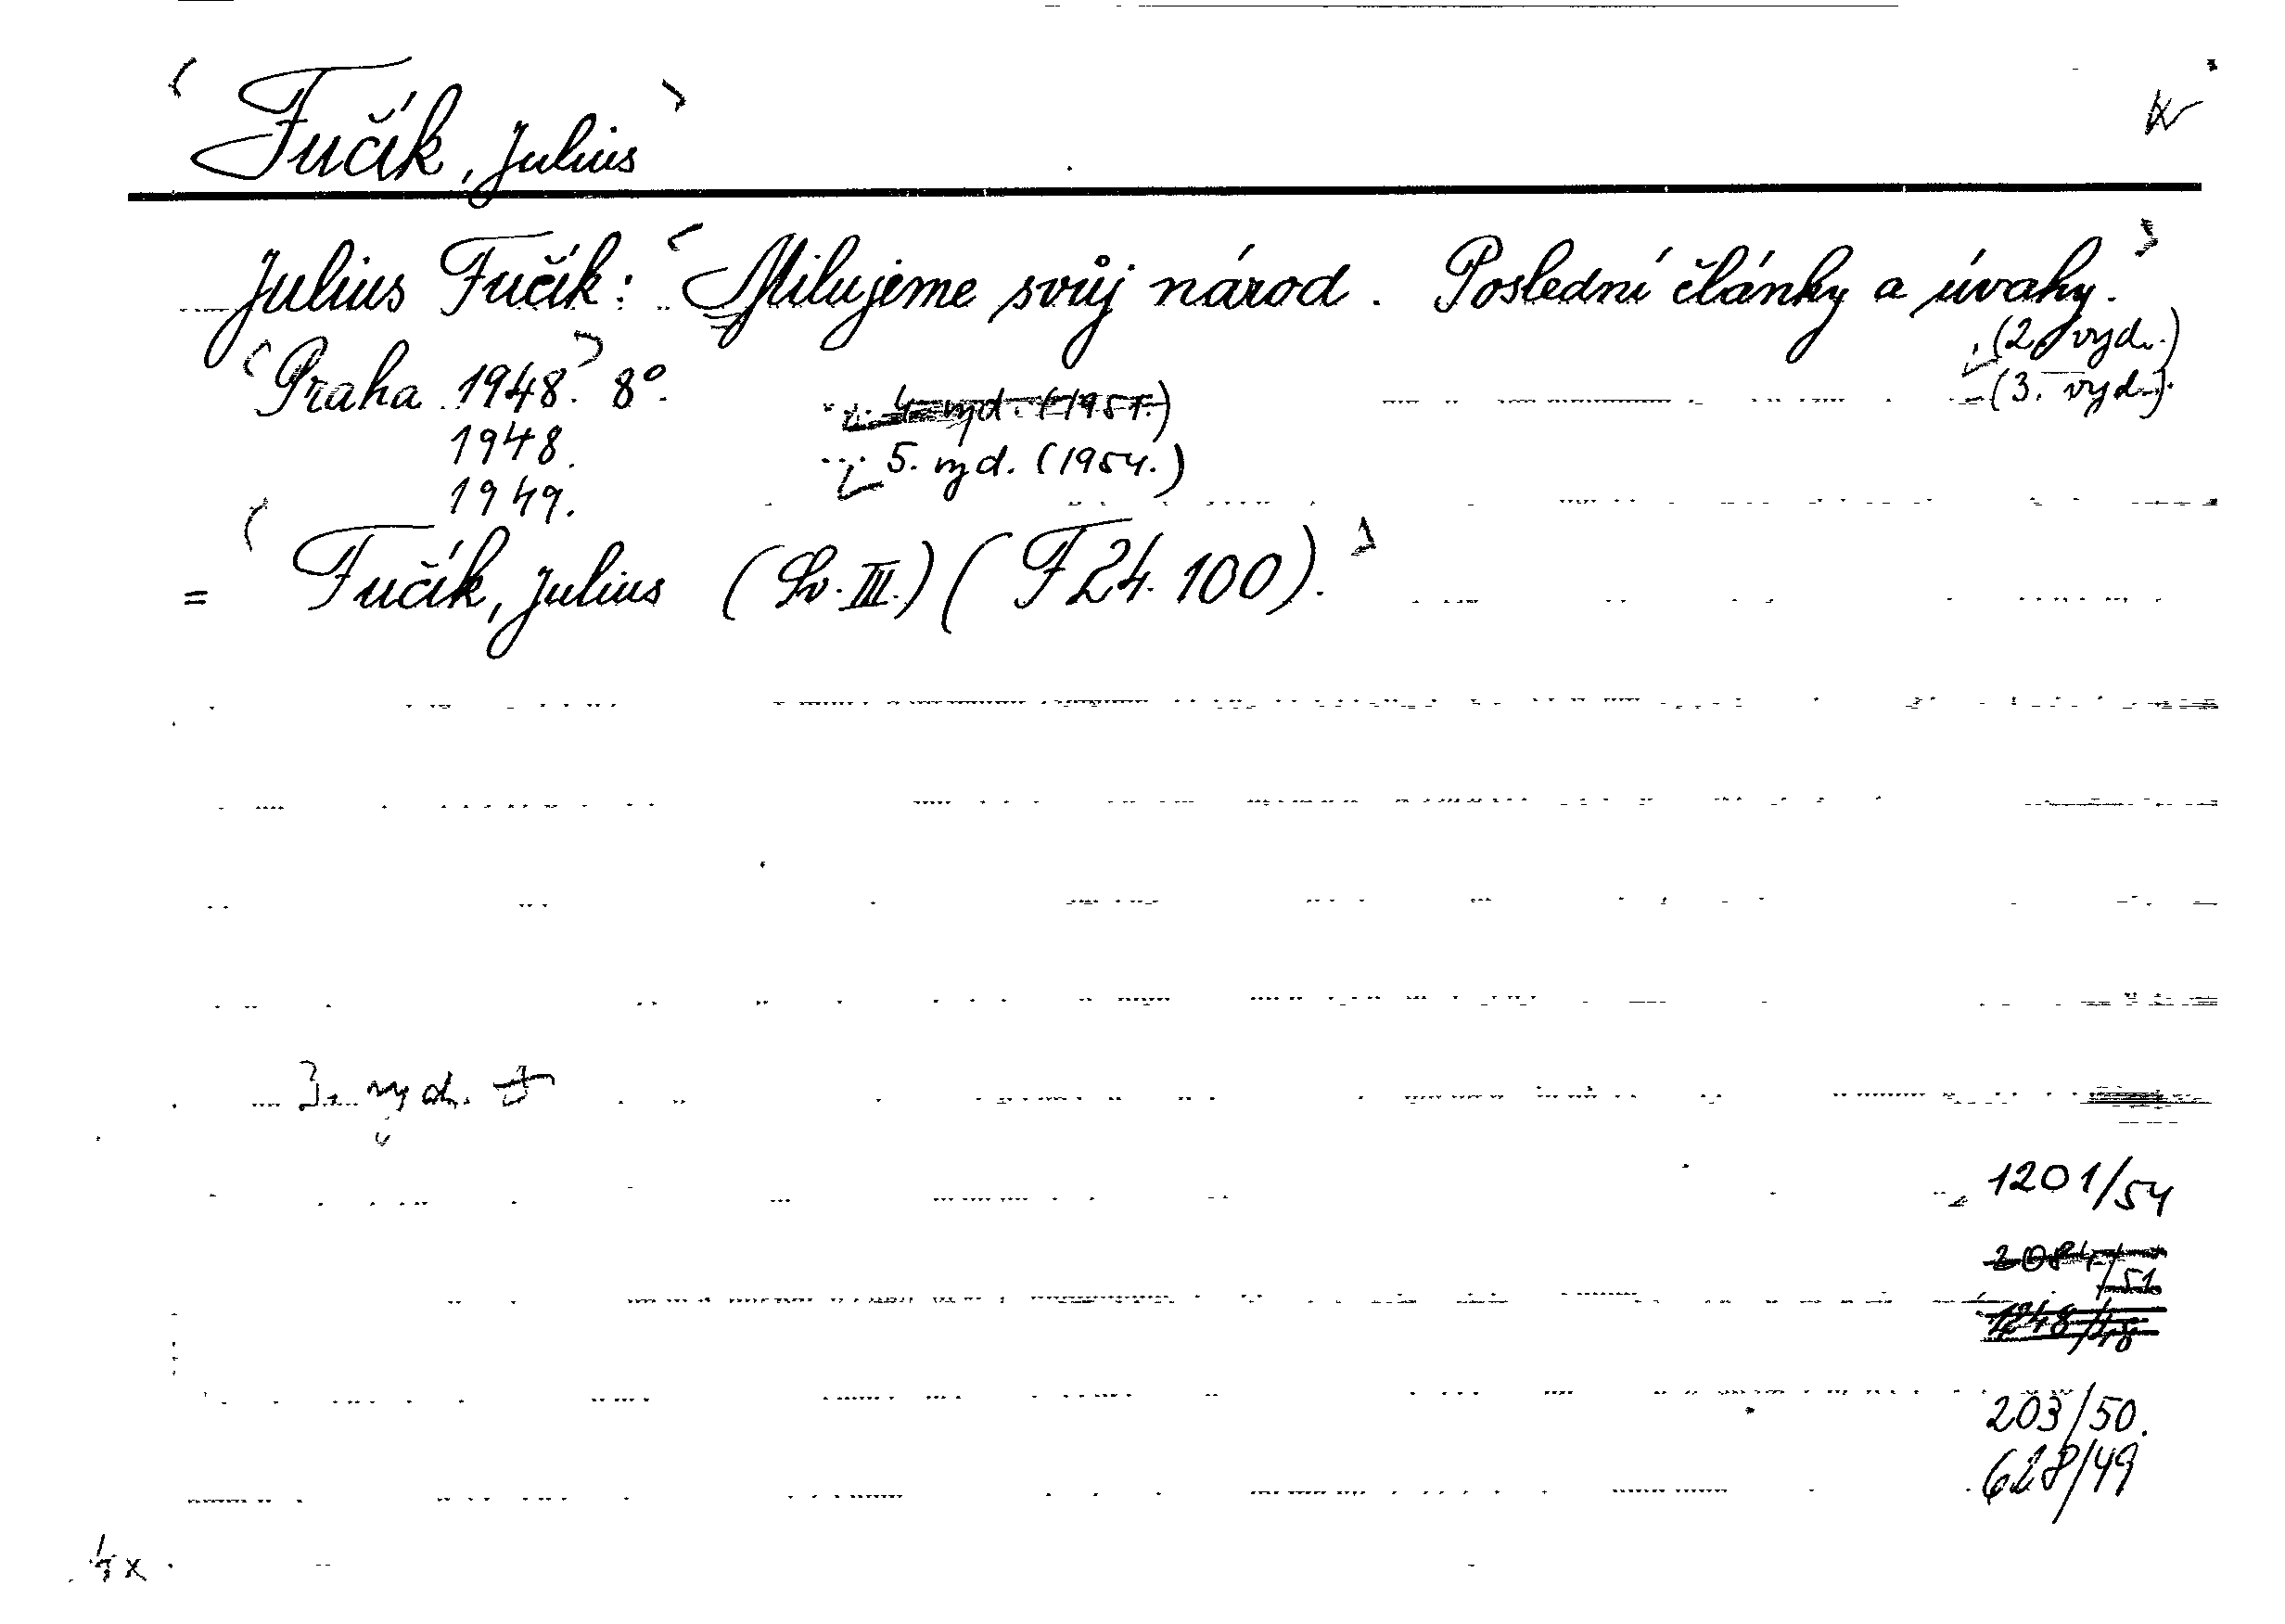 Fučík, Julius
Julius Fučík: Milujeme svůj národ. Poslední články a úvahy.
(2. vyd.)
Praha 1948. 8°.
(3. vyd.)
4. vyd. (1951.)
1948.
5. vyd. (1954.)
1949.
= Fučík, Julius (Sv. III.) (F 24.100).
3. vyd.
1201/54
2084/51
1248/48
203/50.
628/49
4x